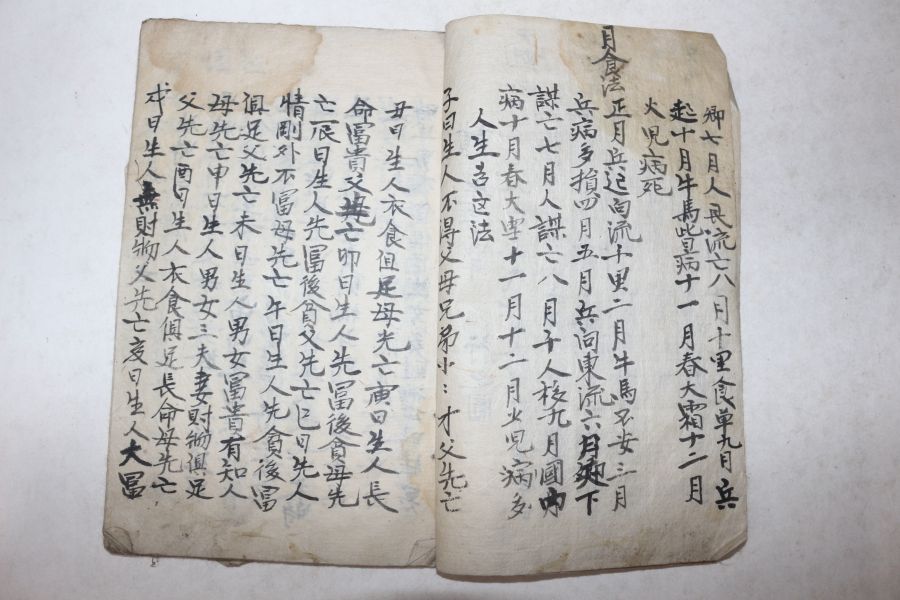 卿七月人民流亡八月十里食草九月兵
起十月牛馬皆病十一月春大霜十二月
火児病死
月食法 正月兵起向流十里二月牛馬不安三月
兵病多損四月五月兵向東流六月 下
謀亡七月人謀亡八月子人核九月國内
病十月春大 十一月十二月少児病多
人生吉 法
子日生人不得父母兄弟小〻才父先亡
丑日生人衣食俱足母先亡寅日生人長
命冨貴父先亡卯日生人先冨後貧母先
亡辰日生人先冨後貧父先亡巳日先人
情剛外不冨母先亡午日生人先貧後冨
俱足父先亡未日生人男女冨貴有知人
母先亡申日生人男女三夫妻財物俱足
父先亡酉日生人衣食俱足長命母先亡
戌日生人無財物父先亡亥日生人大冨